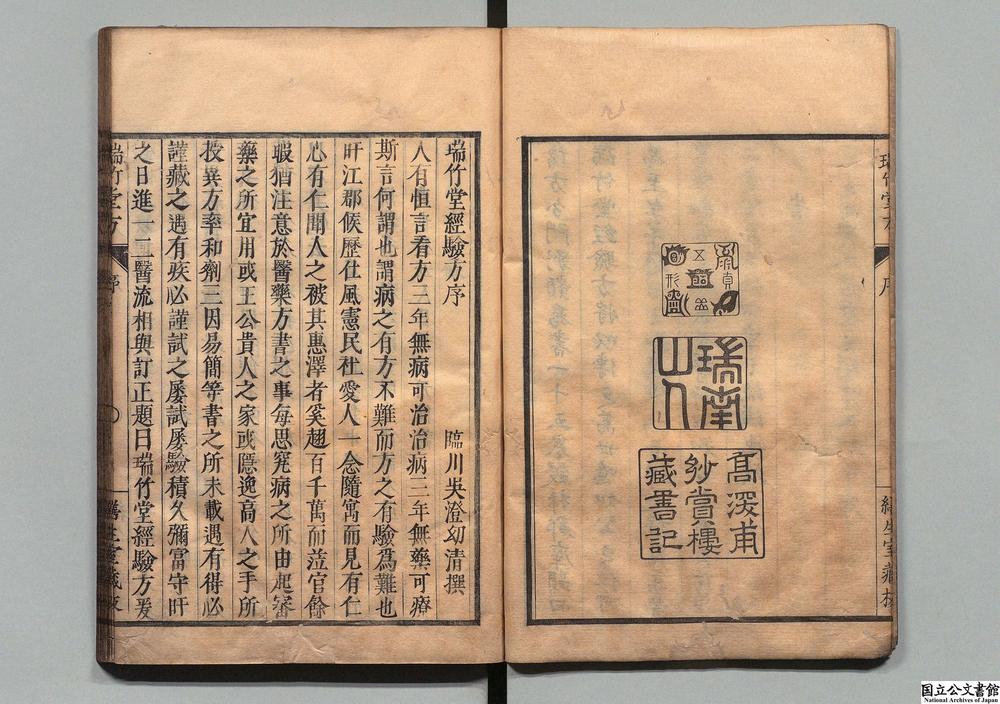 瑞南
山人
高深甫
妙賞樓
藏書記
瑞竹堂經驗方序
臨川吳澄幼清撰
人有恒言看方三年無病可治治病三年無藥可療
斯言何謂也謂病之有方不難而方之有驗爲難也
旴江郡候歷仕風憲民社愛人一念隨寓而見有仁
心有仁聞人之被其惠澤者奚趐百千萬而蒞官餘
暇猶注意於醫藥方書之事每思究病之所由起審
藥之所宜用或王公貴人之家或隱逸高人之手所
授異方率和劑三因易簡等書之所未載遇有得必
謹藏之遇有疾必謹試之屢試屢驗積久彌富守旴
之日進一二醫流相與訂正題曰瑞竹堂經驗方爰
瑞竹堂方
序
國立公文書館
National Archives of Japan